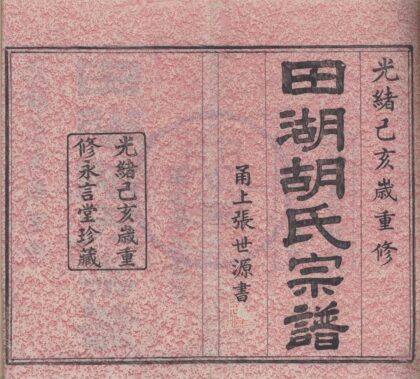 光緒己亥歲重修
田湖胡氏宗譜
甬上張世源書
光緒己亥歲重
修永言堂珍藏